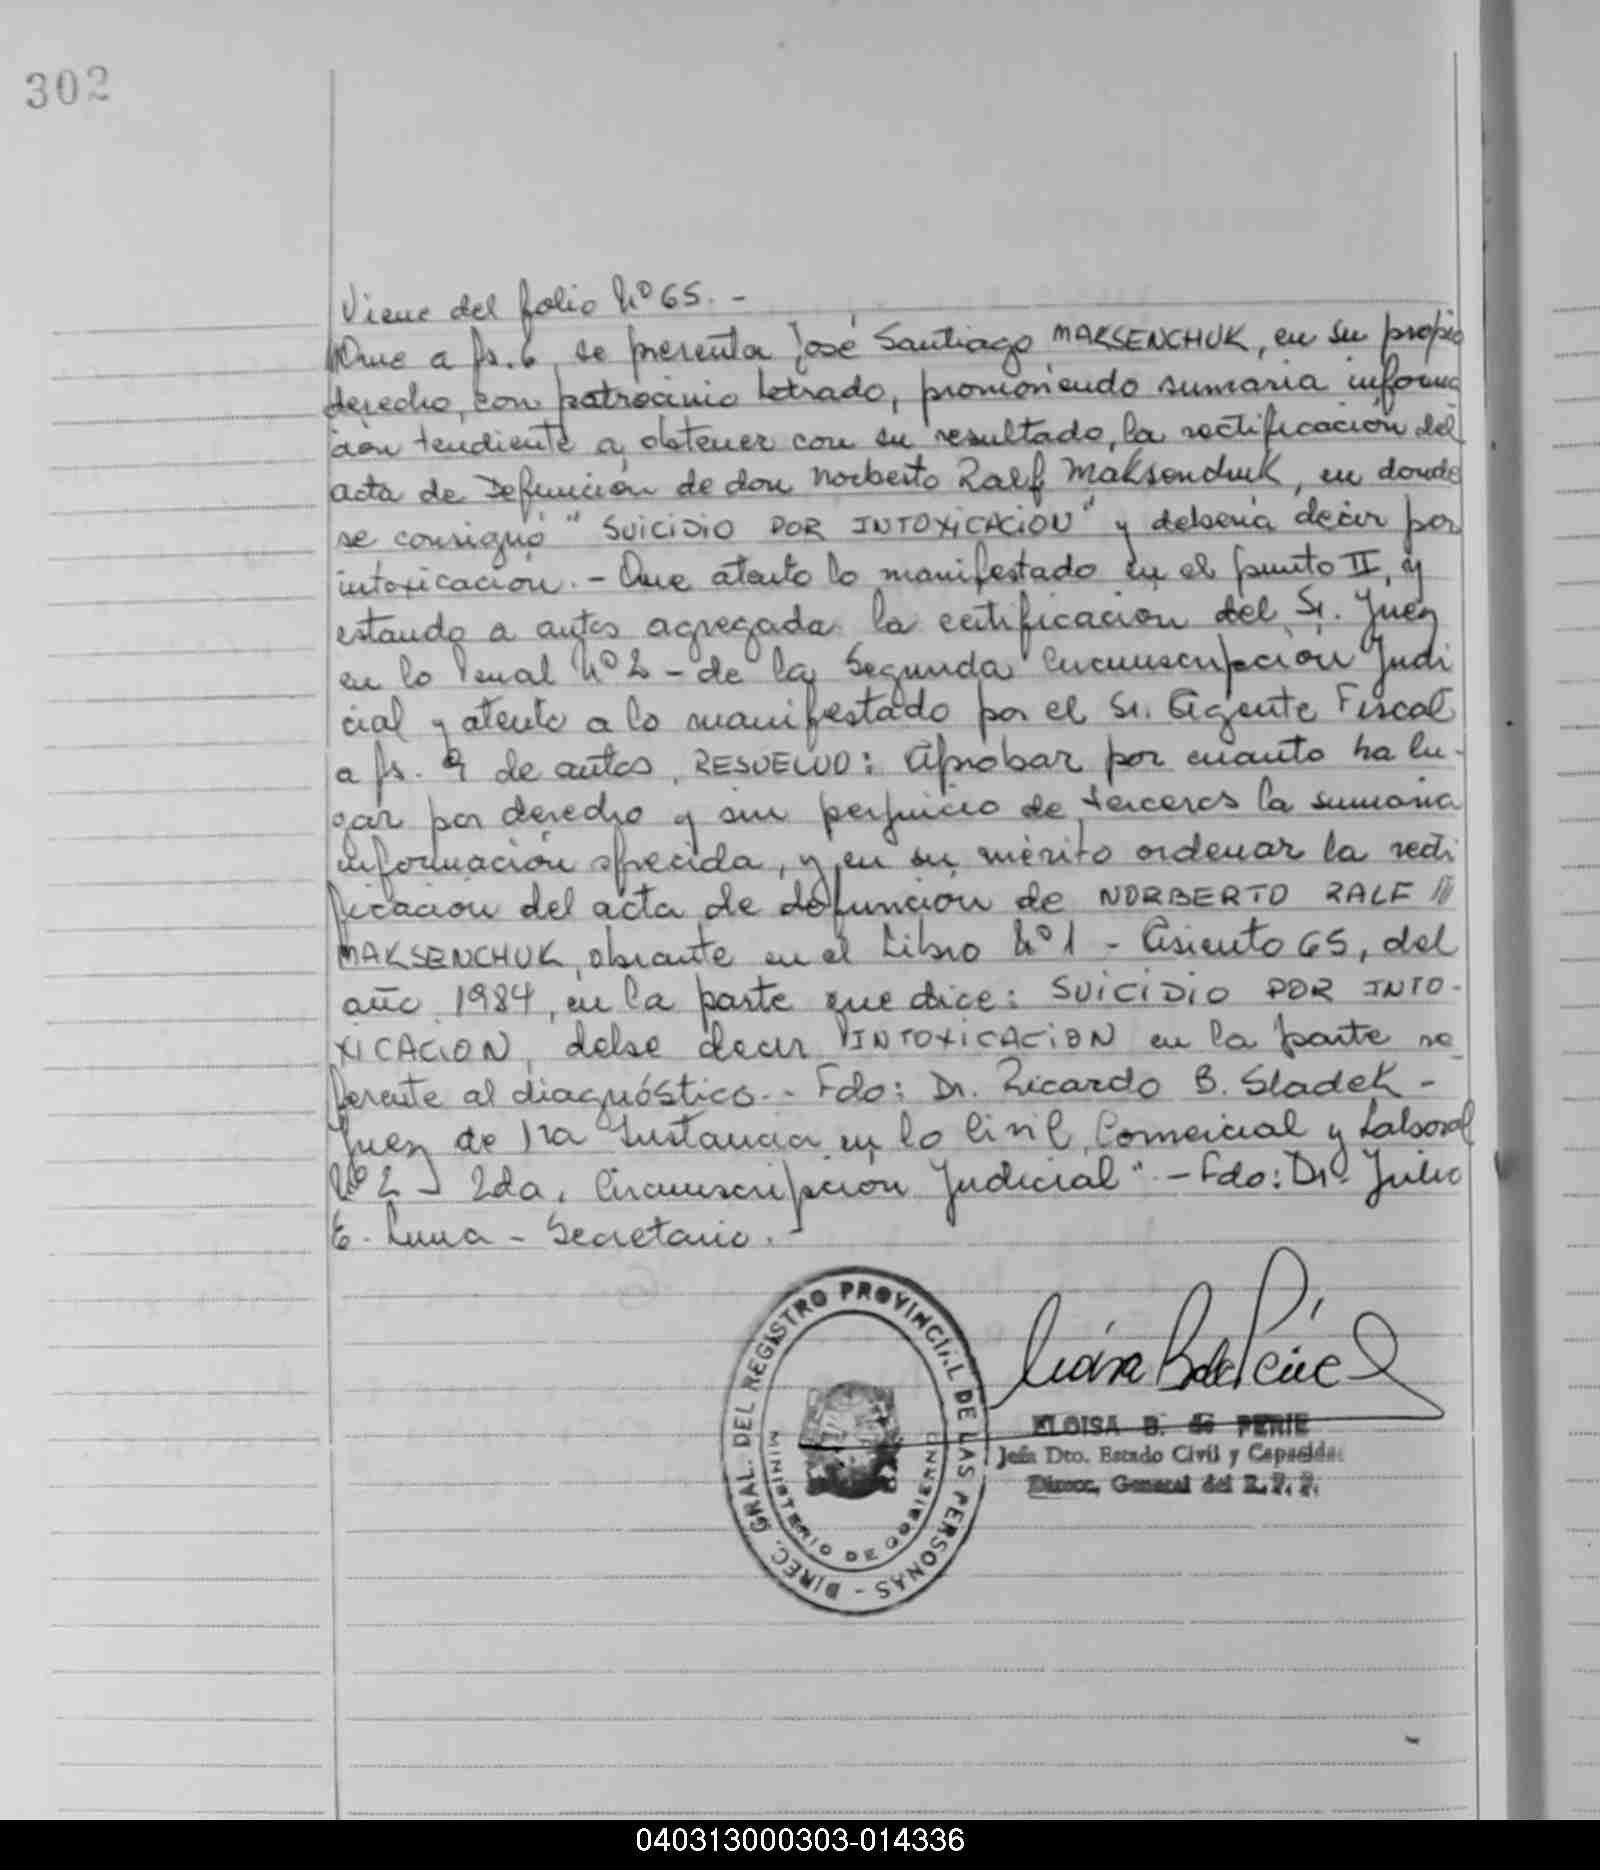 302
Viene del folio Nº 65. -
Que a fs. 6, se presenta José Santiago MAKSENCHUK, en su propio
derecho, con patrocinio letrado, promoviendo sumaria informa
ción tendiente a obtener con su resultado, la rectificación del
acta de Defunción de don Norberto Ralf Maksenchuk, en donde
se consignó "SUICIDIO POR INTOXICACION" y debería decir por
intoxicación. - Que atento lo manifestado en el punto II, y
estando a autos agregada la certificación del Sr. Juez
en lo Penal Nº 2 - de la Segunda Circunscripción Judi
cial y atento a lo manifestado por el Sr. Agente Fiscal
a fs. 9 de autos, RESUELVO: Aprobar por cuanto ha lu-
gar por derecho y sin perjuicio de terceros la sumaria
información ofrecida, y en su mérito ordenar la recti
ficación del acta de defunción de NORBERTO RALF //
MAKSENCHUK, obrante en el Libro Nº 1 - Asiento 65, del
año 1984, en la parte que dice: SUICIDIO POR INTO-
XICACION, debe decir INTOXICACION en la parte re
ferente al diagnóstico. - Fdo: Dr. Ricardo B. Sladek -
Juez de 1ra Instancia en lo Civil, Comercial y Laboral
Nº 2 - 2da. Circunscripción Judicial". - Fdo: Dr. Julio
E. Luna - Secretario. -
DIREC. GRAL. DEL REGISTRO PROVINCIAL DE LAS PERSONAS -
MINISTERIO DE GOBIERNO
ELOISA B. de PERIE
Jefa Dto. Estado Civil y Capacidad
Direcc. General del R. P. P.
040313000303-014336